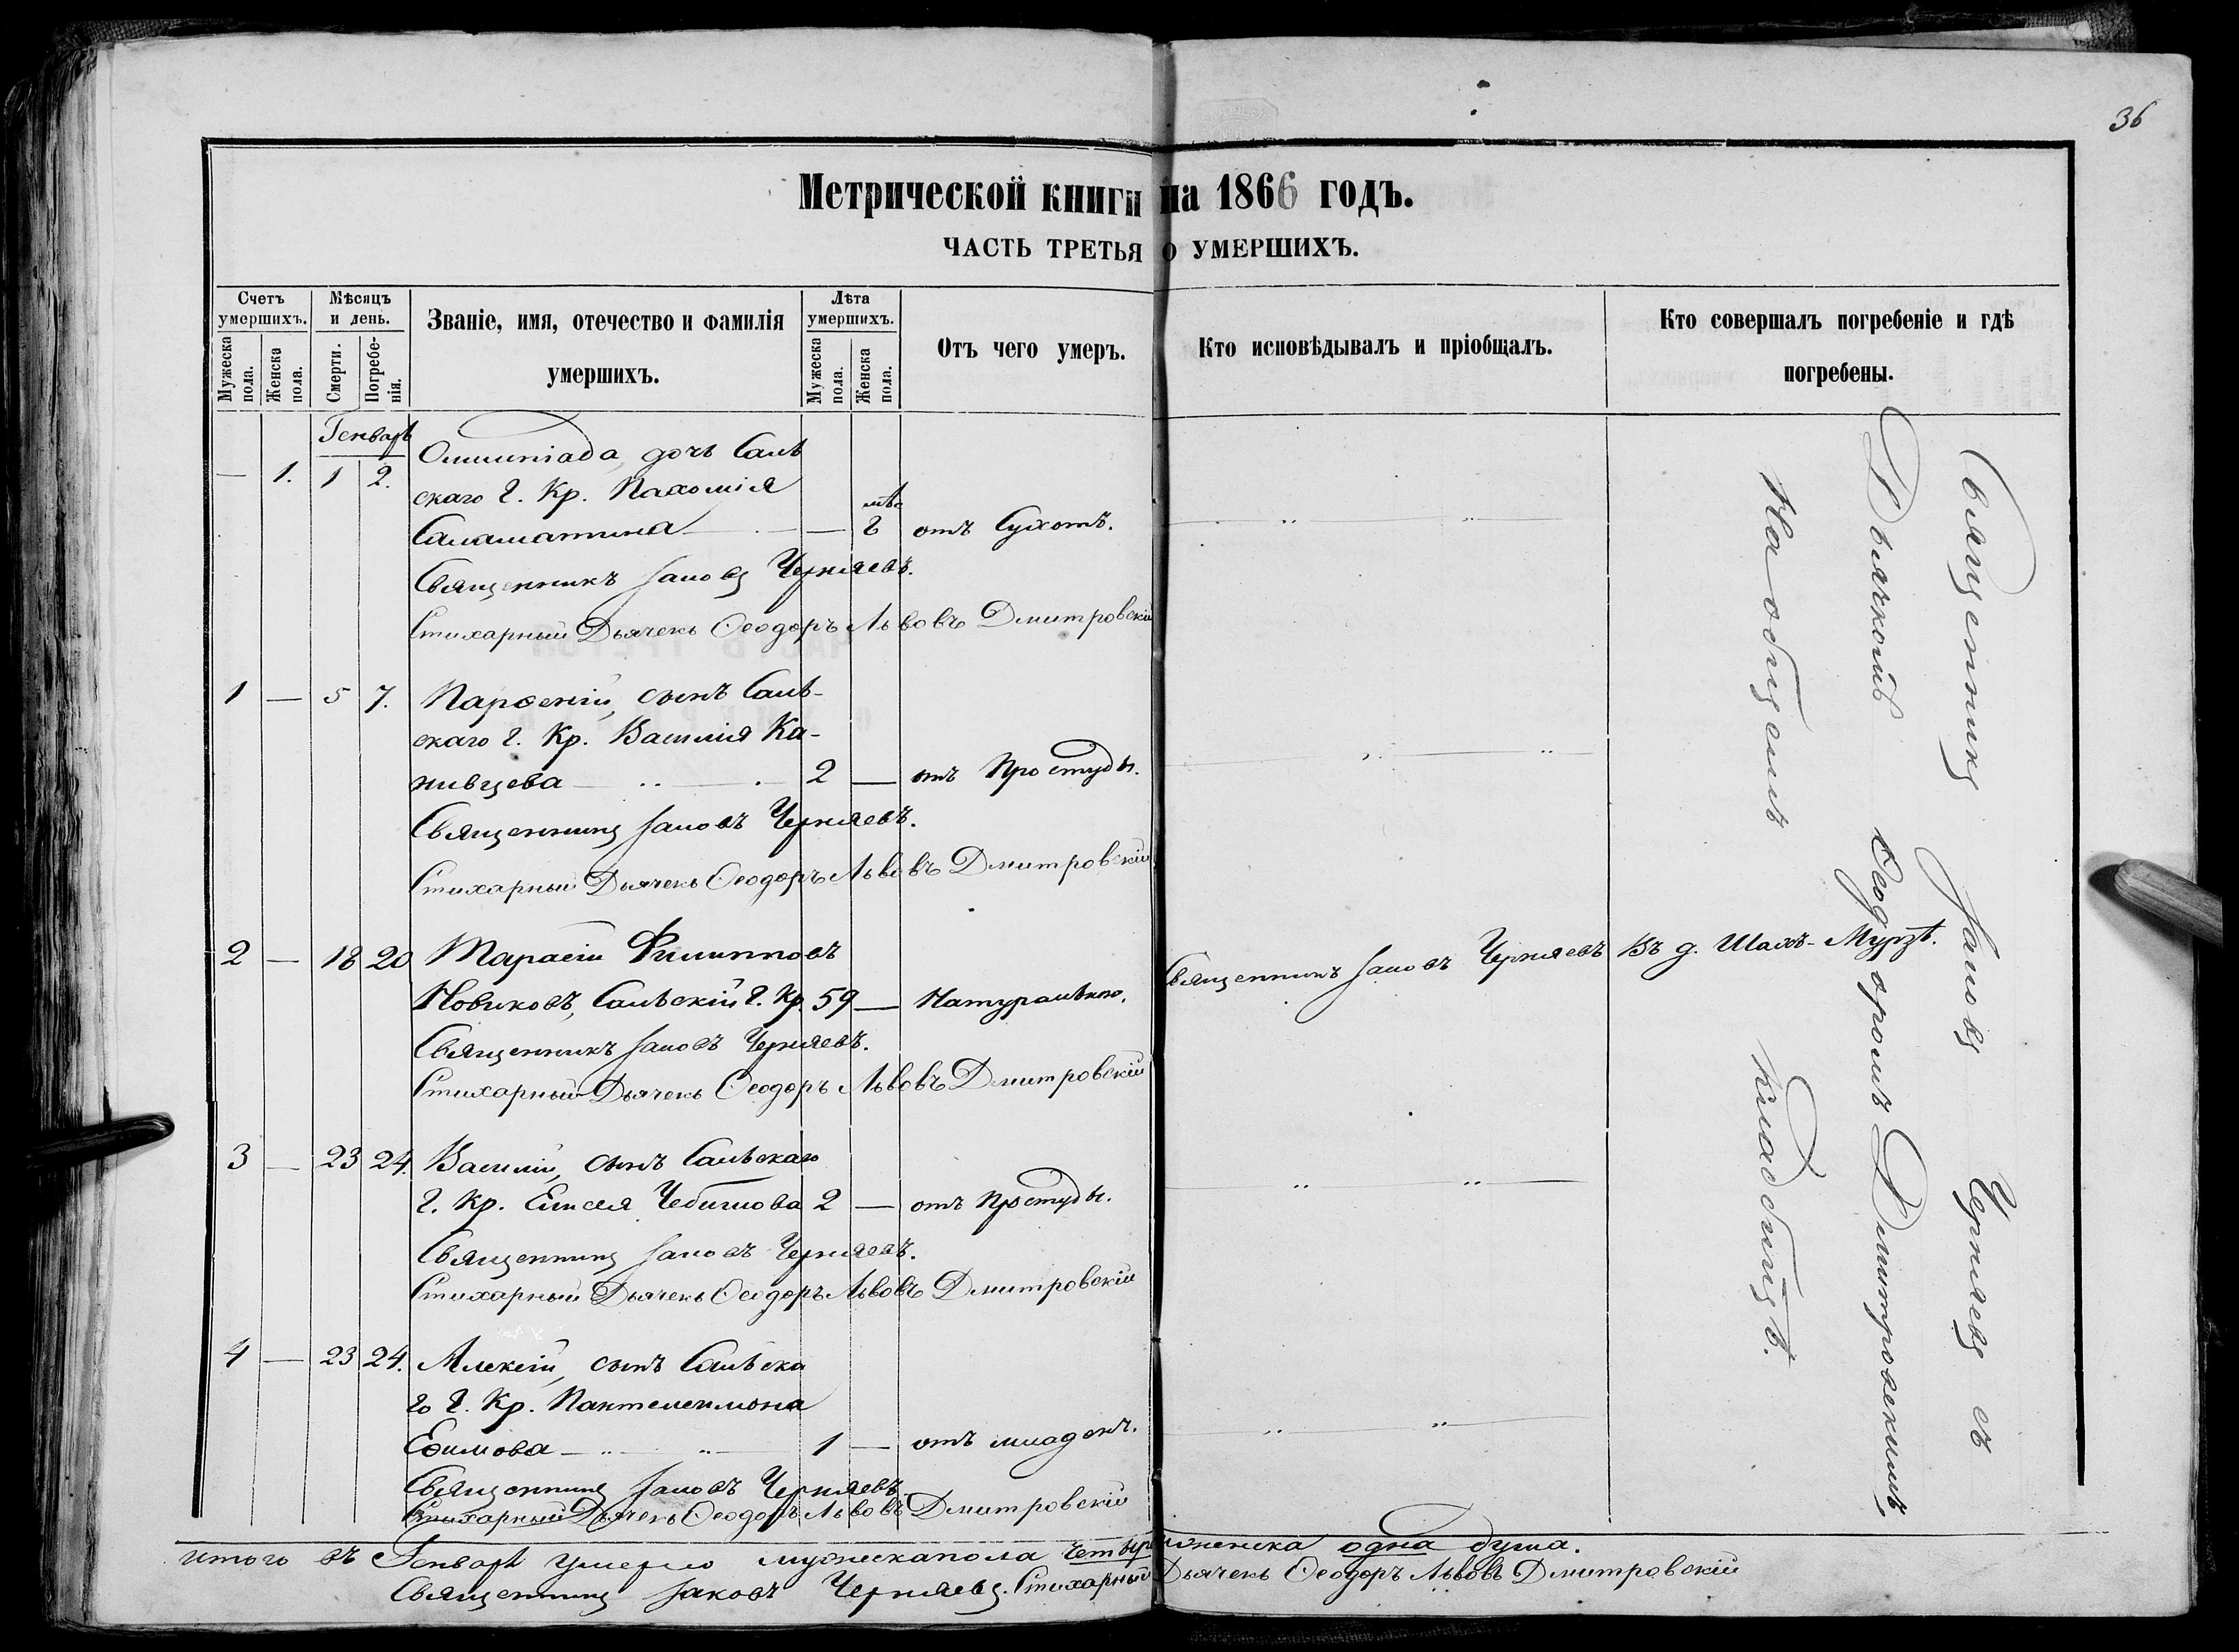 36
Метрической книги на 1866 годъ.
ЧАСТЬ ТРЕТЬЯ О УМЕРШИХЪ.
Счетъ умершихъ.
Мужеска пола.
Женска пола.
Мѣсяцъ и день.
Смерти.
Погребенія.
Званіе, имя, отечество и фамилія умершихъ.
Лѣта умершихъ.
Мужеска пола.
Женска пола.
Отъ чего умеръ.
Кто исповѣдывалъ и пріобщалъ.
Кто совершалъ погребеніе и гдѣ погребены.
Генварь
— 1. 1 2. Олимпіада, дочь Саль
скаго Г. Кр. Пахомія
мѣс
Саламатина — — 8 отъ Сухотъ.
Священникъ Іаковъ Черняевъ.
Стихарный Дьячекъ Ѳеодоръ Львовъ Дмитровскій
1 — 5 7. Парѳеній, сынъ Саль-
скаго Г. Кр. Василія Ка-
нивцева — 2 — отъ Простуды.
Священникъ Іаковъ Черняевъ.
Стихарный Дьячекъ Ѳеодоръ Львовъ Дмитровскій
2 — 18 20 Тарасій Филипповъ
Новиковъ, Сальскій Г. Кр. 59 — Натурально. Священникъ Іаковъ Черняевъ Въ д. Шахъ-Мурзѣ.
Священникъ Іаковъ Черняевъ.
Стихарный Дьячекъ Ѳеодоръ Львовъ Дмитровскій
3 — 23 24. Василій, сынъ Сальскаго
Г. Кр. Елисея 2 — отъ Простуды.
Священникъ Іаковъ Черняевъ.
Стихарный Дьячекъ Ѳеодоръ Львовъ Дмитровскій
4 — 23 24. Алексій, сынъ Сальска
го Г. Кр. Пантелеимона
Ефимова — 1 — отъ младенч.
Священникъ Іаковъ Черняевъ.
Стихарный Дьячекъ Ѳеодоръ Львовъ Дмитровскій
Священникъ Іаковъ Черняевъ съ
Дьячкомъ Ѳеодоромъ Дмитровскимъ,
На общемъ кладбищѣ.
итого въ Генварѣ умерло мужеска пола четыре женска одна душа.
Священникъ Іаковъ Черняевъ. Стихарный Дьячекъ Ѳеодоръ Львовъ Дмитровскій